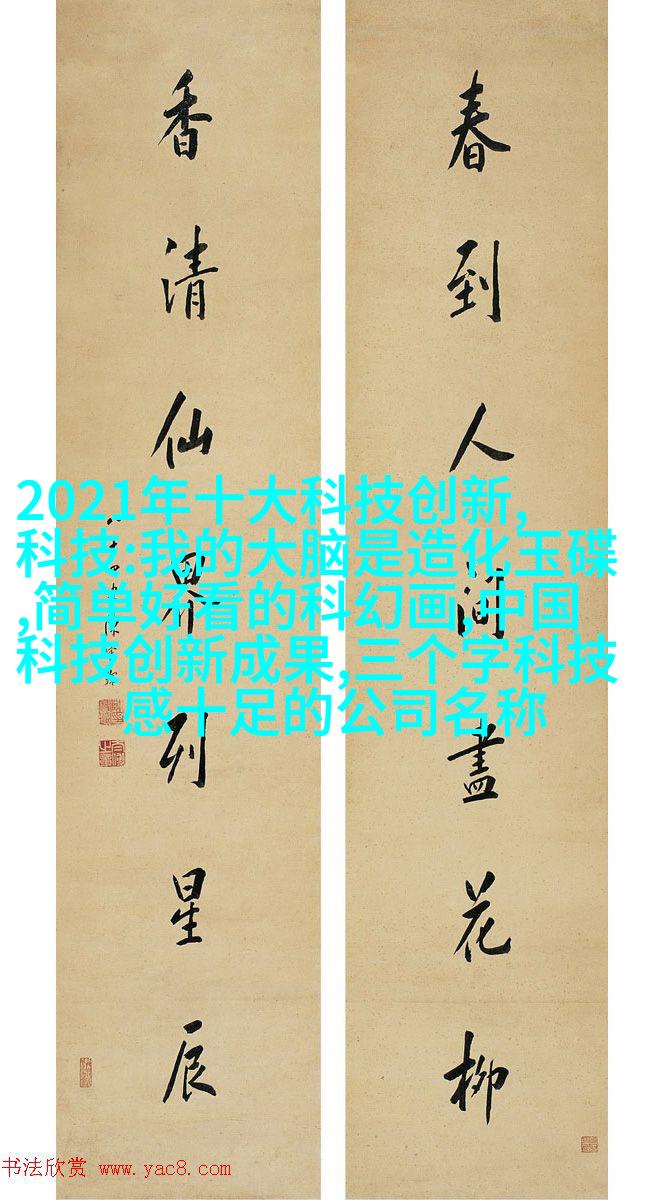 春到人間盡花柳
香清仙界列星辰
2021年十大科技创新,
科技:我的大脑是造化玉碟
,简单好看的科幻画,中国
科技创新成果,三个字科技
感十足的公司名称
书法欣赏 www.yac8.com